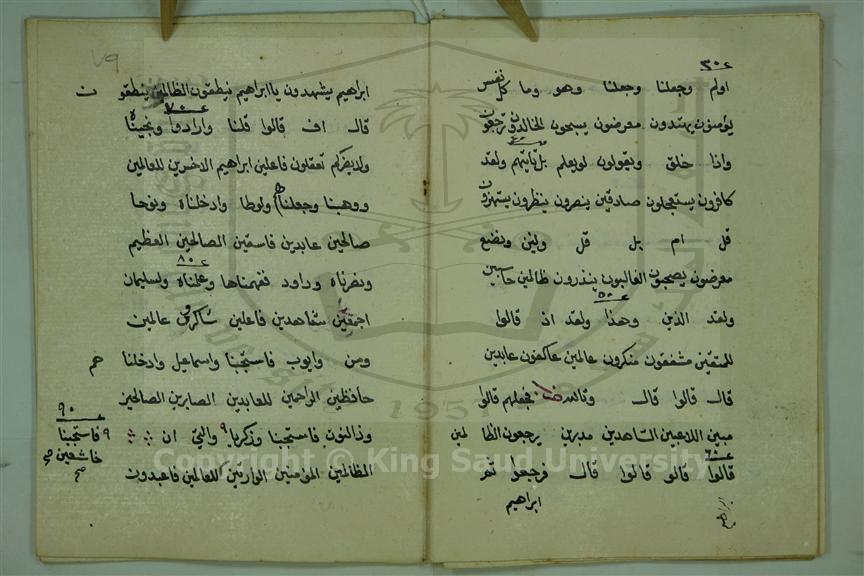 ٣٠
اولم وجعلنا وجعلنا وهو وما كل نفس
يؤمنون يهتدون معرضون يسبحون الخالدون ترجعون
واذا خلق ويقولون لو يعلم بل تأتيهم ولقد
كافرون يستعجلون صادقين ينصرون ينظرون يستهزون
قل ام بل قل ولئن ونضع
معرضون يصحبون الغالبون ينذرون ظالمين حاسبين
٥٠
ولقد الذين وهذا ولقد اذ قالوا
للمتقين مشفقون منكرون عالمين عاكفون عابدين
قال قالوا قال وتالله فجعلهم قالوا
مبين اللاعبين الشاهدين مدبرين يرجعون الظالمين
٦٠
قالوا قالو قالوا قال فرجعوا ثم
ابراهيم
ابراهيم
٧٩
ابراهيم يشهدون يا ابراهيم ينطقون الظالمين ينطقون
٧٠
قال اف قالوا قلنا وارادوا ونجيناه
ولا يضركم تعقلون فاعلين ابراهيم الاخسرين للعالمين
ووهبنا وجعلناهم ولوطا وادخلناه ونوحا
صالحين عابدين فاسقين الصالحين العظيم
٨٠
ونصرناه وداود ففهمناها وعلمناه ولسليمان
اجمعين شاهدين فاعلين شاكرون عالمين
ومن وايوب فاستجبنا واسماعيل وادخلناهم
حافظين الراحمين للعابدين الصابرين الصالحين
٩٠
وذالنون فاستجبنا وذكريا والتي ان
فاستجبنا
خاشعين صح
صح
الظالمين المؤمنين الوارثين للعالمين فاعبدون
Copyright © King Saud University
1957